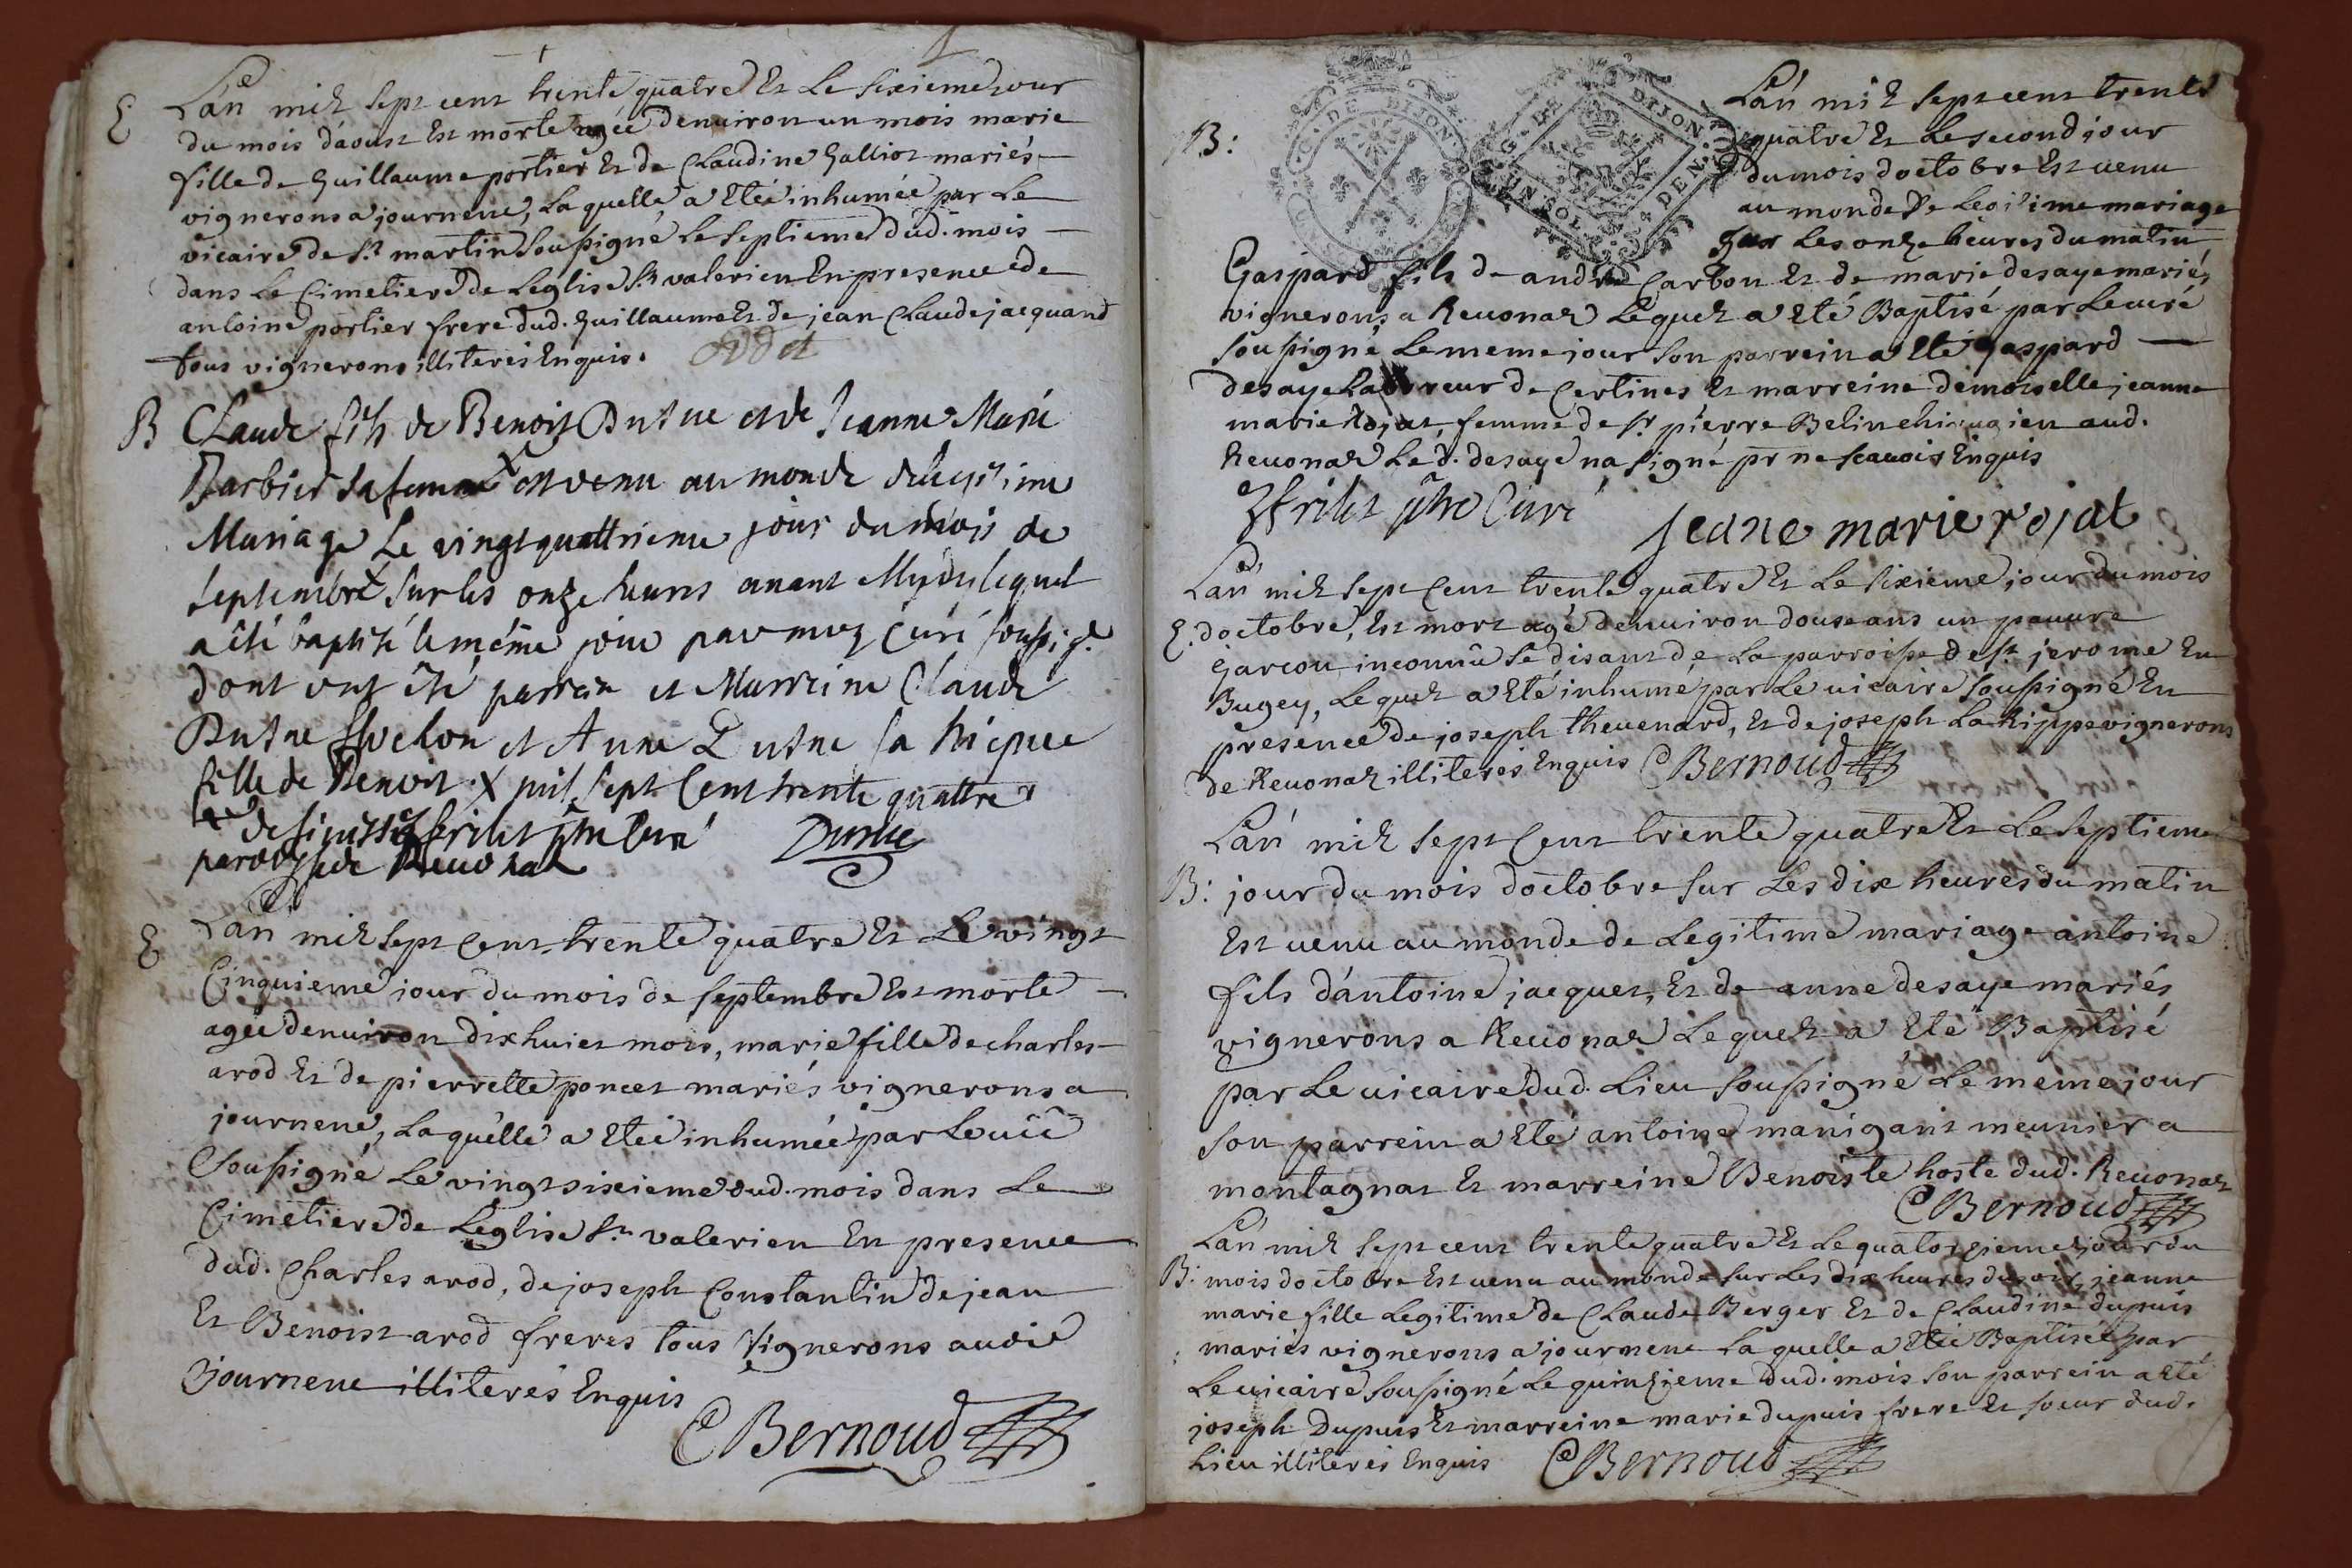 E
Lan mil sept cent trente quatre Et Le sixieme jour
du mois d'aoust Est morte agée denuiron un mois marie
fille de Guillaume portier Et de Claudine Galliot mariés
vignerons a journene, La quelle a Eteé inhumée par Le
vicaire de St. martin Soussigné Le septieme dud. mois
dans Le Cimetiere de Leglise St valerien En presence de
antoine portier frere dud. Guillaume Et de jean Claude jacquand
tous vignerons illiterés Enquis.
B
Claude fils de Benoist Dutue et de Jeanne Marie
Barbier sa femme X est venu au monde de legitime
Mariage Le vingt quattrieme jour du mois de
septembre X sur les onze heures avant Mydy lequel
a été baptisé le même jour par moy Curé soussig.
dont ont été parrain et Marreine Claude
Dutue et Anne Dutue sa
fille de Benoit. X mil sept Cent trente quattre
ptre Curé
paroisse de Reuonas
E
Lan mil sept Cent trente quatre Et Le vingt
Cinquieme jour du mois de septembre Est morte
agée denuiron dix huict mois, marie fille de charles
arod Et de pierrette poncet mariés vignerons a
journene, La quelle a Eteé inhumée par Le
Soussigné Le vingt sixieme dud. mois dans Le
Cimetiere de Leglise St valerien En presence
dud. Charles arod, de joseph Constantin de jean
Et Benoist arod freres tous vignerons aud
journene illiterés Enquis
CBernoud
C. DE. DIJON
G. DE DIJON
UN SOL
DEN
B:
Lan mil sept cent trente
quatre Et Le second jour
du mois doctobre Est uenu
au monde De Legitime mariage
Sur Les onze heures du matin
Gaspard fils de andré Carbon Et de marie desaye mariés
vignerons a Reuonas Lequel a Eté Baptisé par Le curé
soussigné Le meme jour son parrein a Eté Gaspard
desaye Laboureur de Certines Et marreine demoiselle jeanne
marie Rojat, femme de Sr pierre Belin chirugien aud.
Reuonas Le d. desaye na signé pr ne scauoir Enquis
ptre Curé
jeane marie rojat
Lan mil sept Cent trente quatre Et Le sixieme jour du mois
E. doctobre, Est mort agé denuiron douse ans un pauure
Garcon inconnû se disant de La parroisse de St. jerome En
Bugey, Lequel a Eté inhumé par Le uicaire soussigné En
presence de joseph theuenard, Et de joseph La Rippe vignerons
de Reuonas illiterés Enquis CBernoud
Lan mil sept Cent trente quatre Et Le septieme
B: jour du mois doctobre sur Les dix heures du matin
Est uenu au monde de Legitime mariage antoine
fils d'antoine jacquet, Et de anne desaye mariés
vignerons a Reuonas Lequel a Eté Baptisé
par Le uicaire dud. Lieu soussigné Le meme jour
son parrein a Eté antoine manigant meunier a
montagnat Et marreine Benoiste hoste dud. Reuonas
CBernoud
Lan mil sept cent trente quatre Et Le quatorzieme jour du
B: mois doctobre Est uenu au monde sur Les dix heures du soir, jeanne
marie fille Legitime de Claude Berger Et de Claudine dupuis
mariés vignerons a journene La quelle a Eteé Baptiseé par
Le uicaire soussigné Le quinzieme dud. mois son parrein a Eté
joseph Dupuis Et marreine marie dupuis frere Et soeur dud.
Lieu illiterés Enquis CBernoud